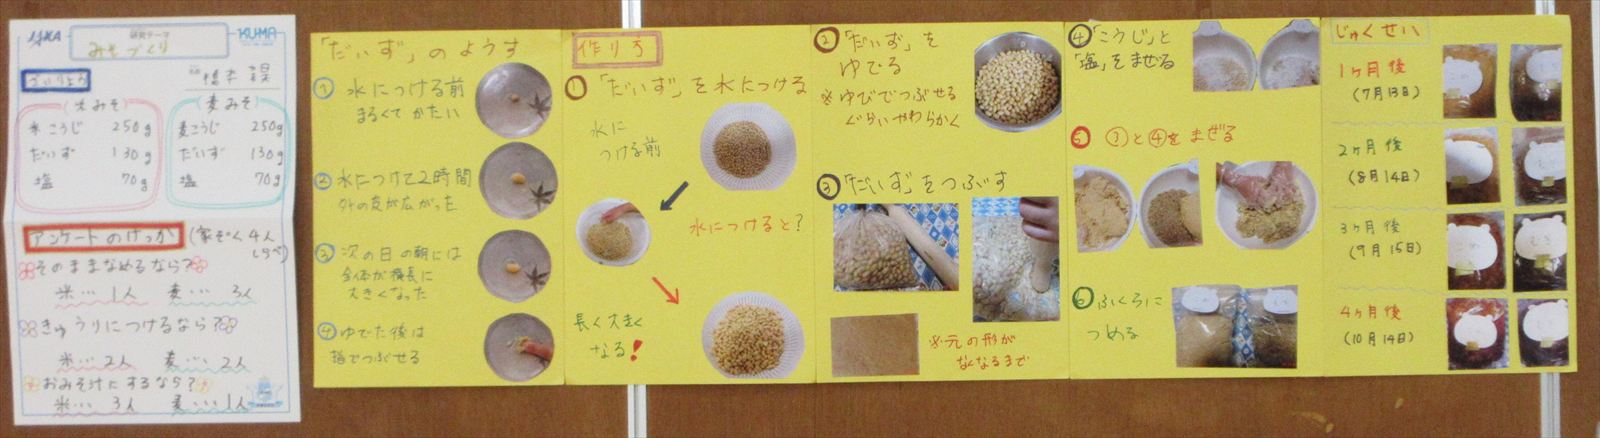 研究テーマ
KUMA
みそづくり
ざいりょう
(米みそ)
米こうじ 250g
だいず 130g
塩 70g
(麦みそ)
麦こうじ 250g
だいず 130g
塩 70g
アンケートのけっか
(家ぞく4人
しらべ)
そのままなめるなら?
米… 1人 麦… 3人
きゅうりにつけるなら?
米… 2人 麦… 2人
おみそ汁にするなら?
米… 3人 麦… 1人
「だいず」のようす
① 水につける前
まるくてかたい
② 水につけて2時間
外の皮が広がった
③ 次の日の朝には
全体が横長に
大きくなった
④ ゆでた後は
指でつぶせる
作り方
① 「だいず」を水につける
水に
つける前
水につけると?
長く大きく
なる!
② 「だいず」を
ゆでる
※ゆびでつぶせる
ぐらいやわらかく
③ 「だいず」をつぶす
※元の形が
なくなるまで
④ 「こうじ」と
「塩」をまぜる
⑤ ③と④をまぜる
⑥ ふくろに
つめる
じゅくせい
1ヶ月後
(7月13日)
2ヶ月後
(8月14日)
3ヶ月後
(9月15日)
こめ
むぎ
4ヶ月後
(10月14日)